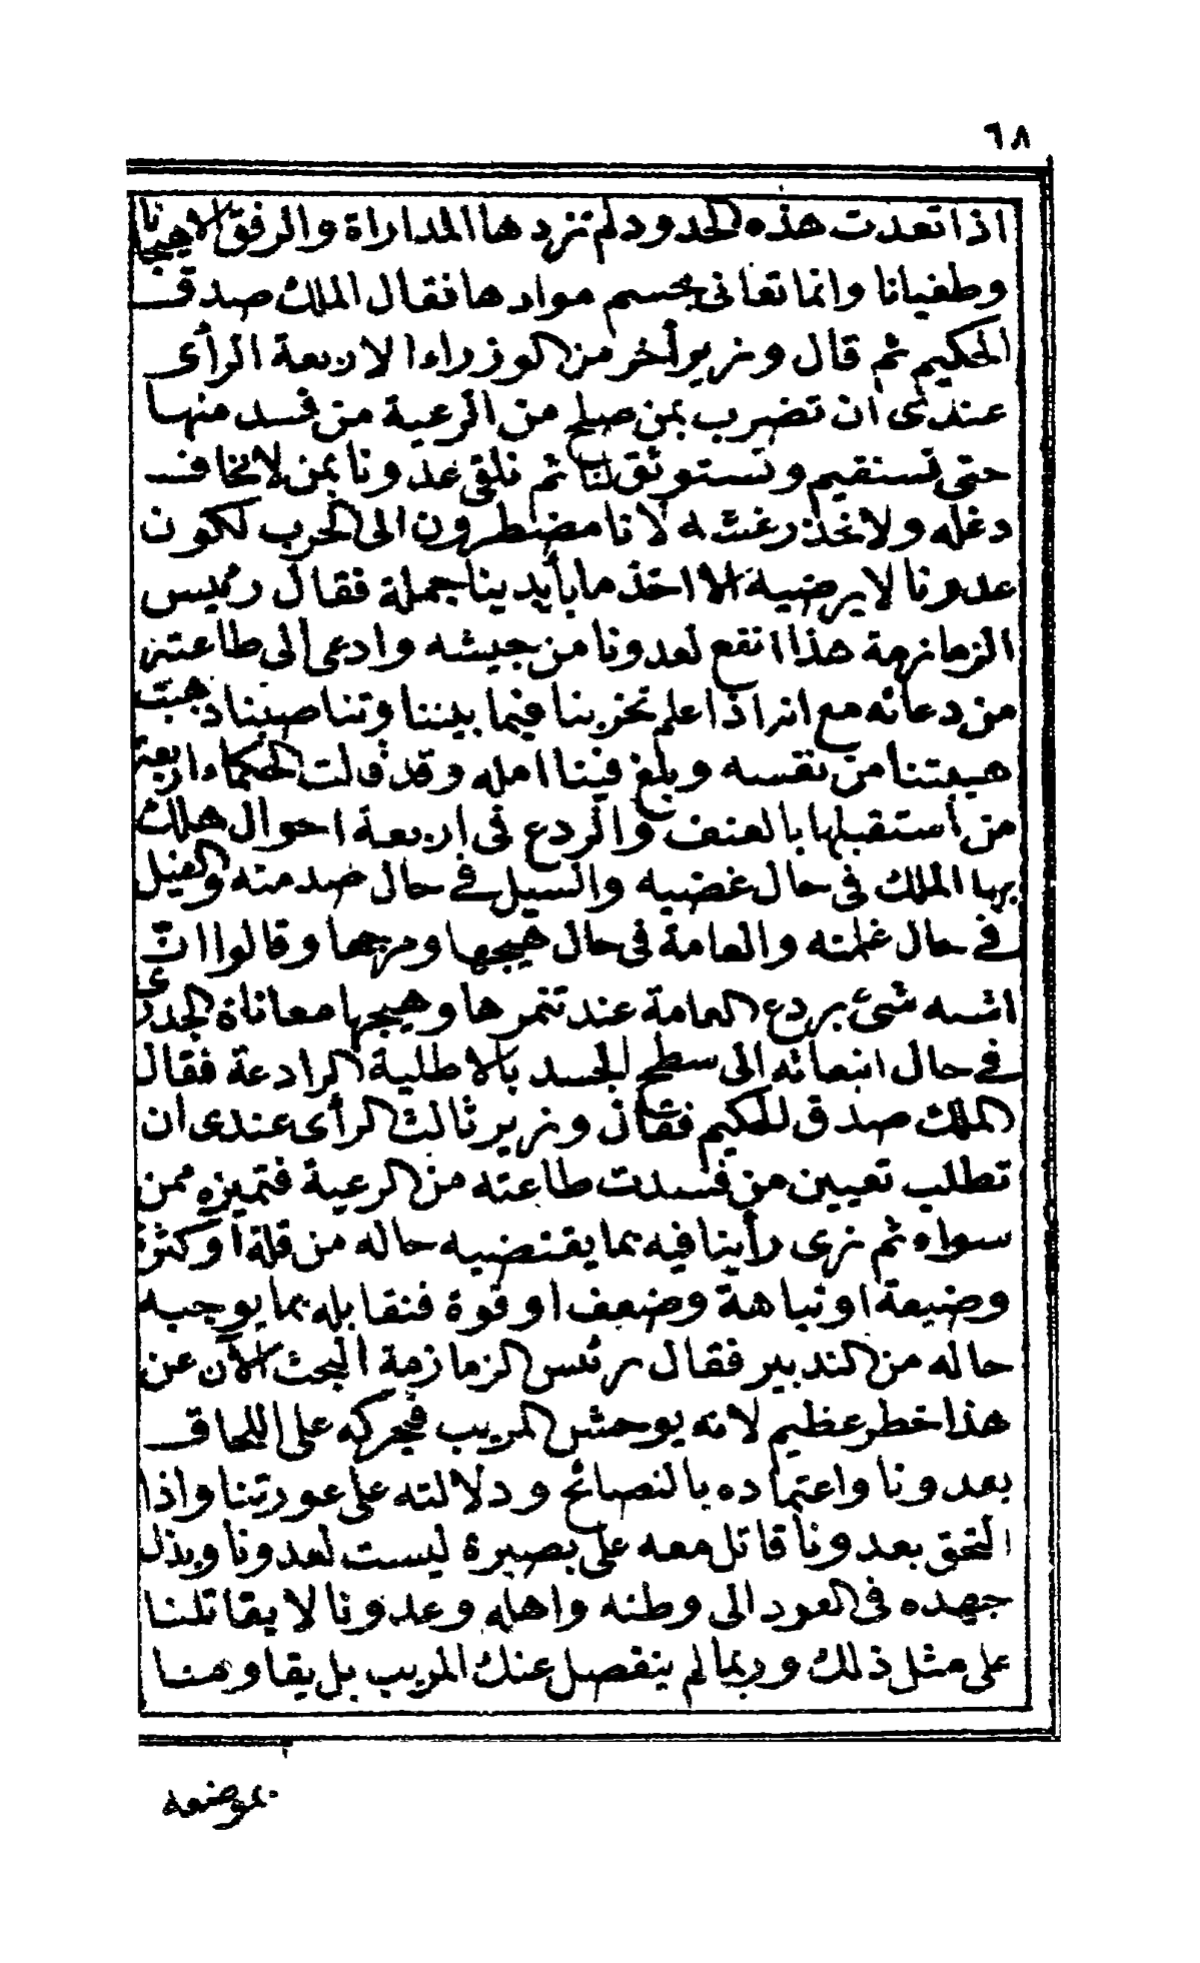 ٦٨
اذا تعدت هذه الحدود لم تزدها المداراة والرفق الا هيجانا
وطغيانا وانما تعانى بحسم موادها فقال الملك صدق
الحكيم ثم قال وزير أخر من الوزراء الاربعة الرأى
عندى ان تضرب بمن صلح من الرعية من فسد منها
حتى تستقيم وتستوثق لنا ثم نلقى عدونا بمن لا نخاف
دغله ولا نحذر غشه لانا مضطرون الى الحرب لكون
عدونا لا يرضيه الا اخذ ما بأيدينا جملة فقال رئيس
الزمازمة هذا انفع لعدونا من جيشه وادعى الى طاعته
من دعائه مع انه اذا علم تحزبنا فيما بيننا وتناصبنا ذهبت
هيبتنا من نفسه وبلغ فينا امله وقد قالت الحكماء اربعة
من استقبلها بالعنف والردع فى اربعة احوال هلك
بها الملك فى حال غضبه والسيل فى حال صدمته والفيل
فى حال غلمته والعامة فى حال هيجها ومرجها وقالوا ان
اشبه شئ بردع العامة عند تنمرها وهيجها معاناة الجدرى
فى حال انبعاثه الى سطح الجسد بالاطلية الرادعة فقال
الملك صدق الحكيم فقال وزير ثالث الرأى عندى ان
تطلب تعيين من فسدت طاعته من الرعية فتميزه ممن
سواه ثم نرى رأينا فيه بما يقتضيه حاله من قلة او كثرة
وضيعة او نباهة وضعف او قوة فنقابله بما يوجبه
حاله من التدبير فقال رئيس الزمازمة البحث الآن عن
هذا خطر عظيم لانه يوحش المريب فيحركه على اللحاق
بعدونا واعتماده بالنصائح ودلالته على عورتنا واذا
التحق بعدونا قاتل معه على بصيرة ليست لعدونا وبذل
جهده فى العود الى وطنه واهله وعدونا لا يقاتلنا
على مثل ذلك وربما لم ينفصل عنك المريب بل يقاومنا
بموضعه